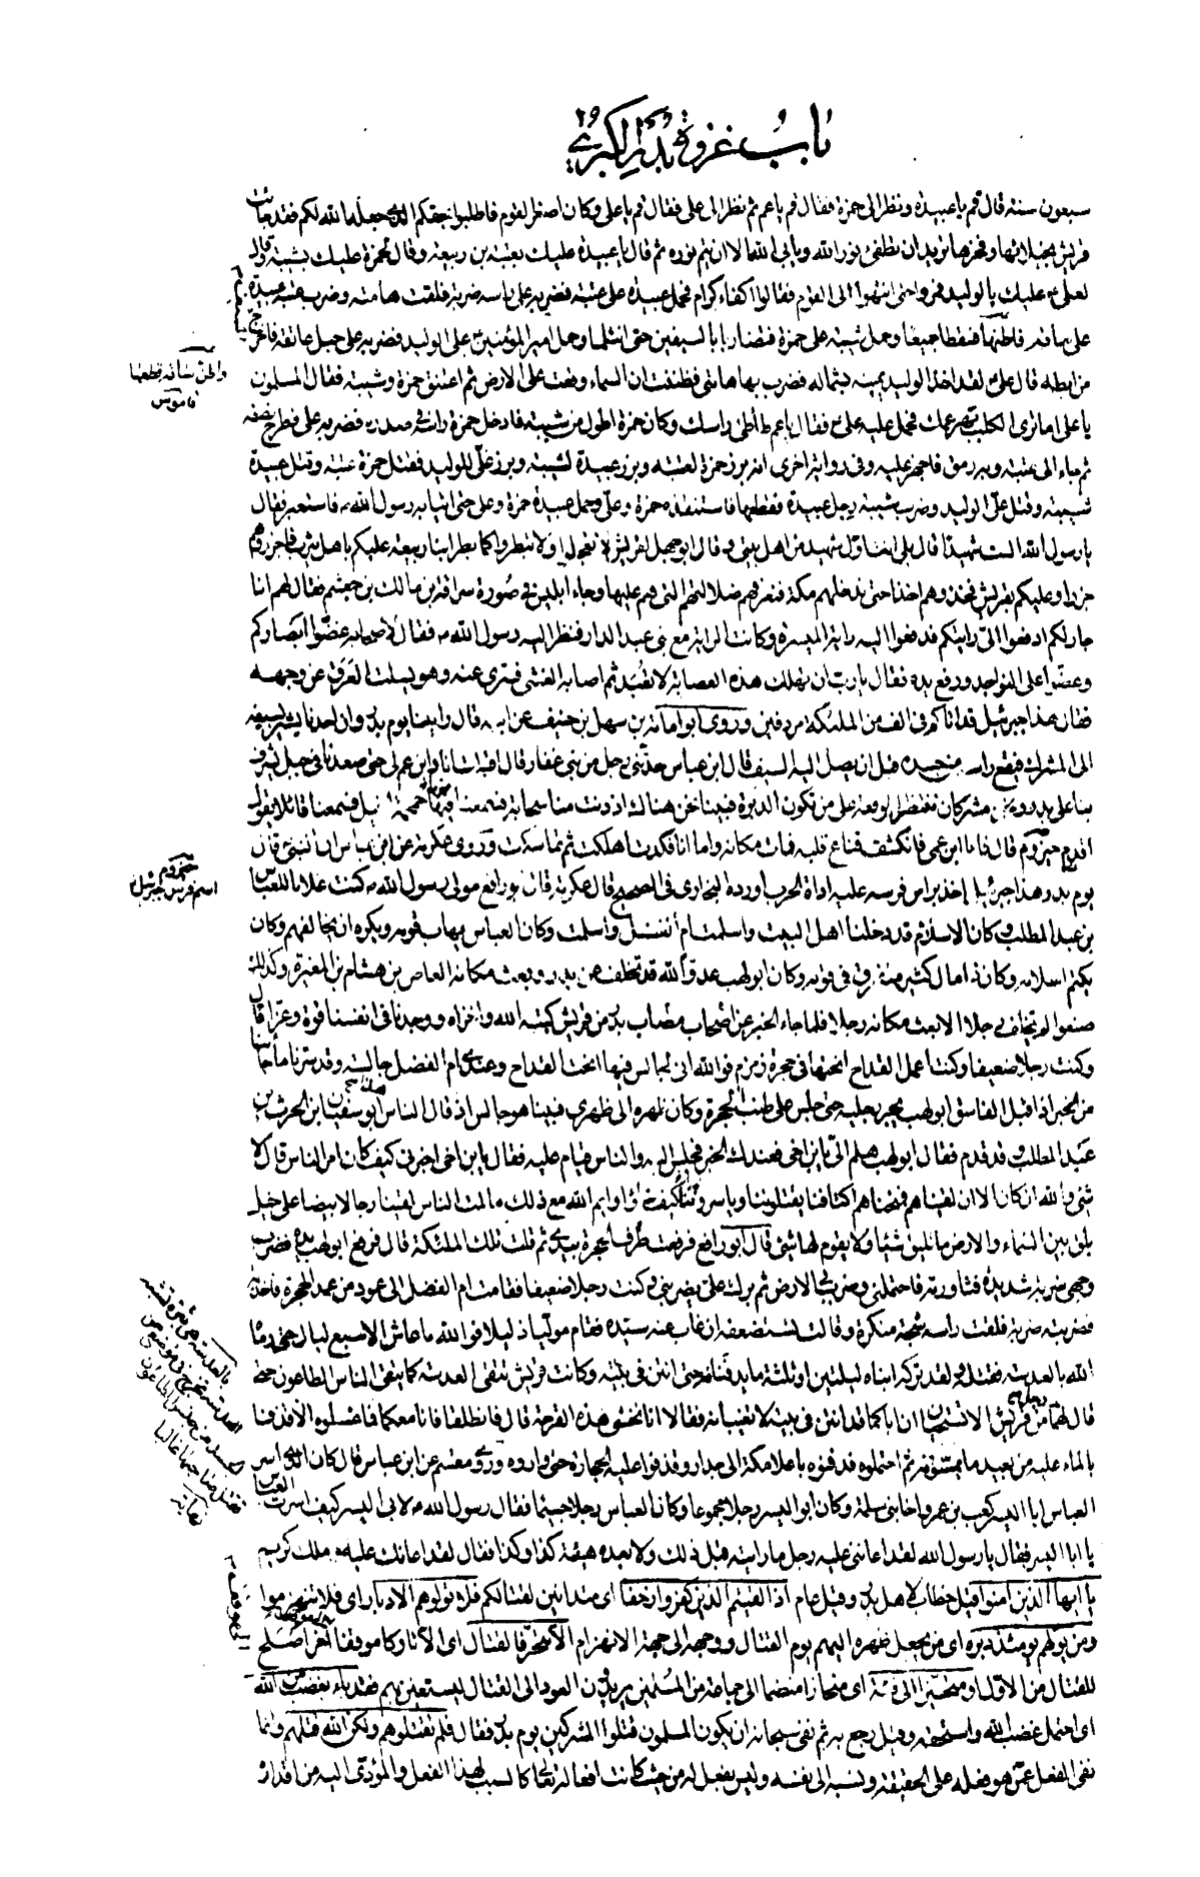 باب غزوة بدر الكبرى
سبعون سنة قال قم يا عبيدة ونظر الى حمزة فقال قم يا عم ثم نظر الى على فقال قم يا على وكان اصغر القوم فاطلبوا بحقكم الذى جعله الله لكم فقد جائت
قريش بخيلائها وفخرها تريد ان تطفئ نور الله ويابى الله الا ان يتم نوره ثم قال يا عبيدة عليك بعتبة بن ربيعة وقال لحمزة عليك بشيبة وقال
لعلى ع عليك بالوليد فمروا حتى انتهوا الى القوم فقالوا اكفاء كرام فحمل عبيدة على عتبة فضربه على راسه ضربة فلقت هامته وضرب عتبة عبيدة
على ساقه فاطنها فسقطا جميعا وحمل شيبة على حمزة فتضاربا بالسيفين حتى انثلما وحمل امير المؤمنين ع على الوليد فضربه على حبل عاتقه فاخرج
من ابطه قال على لقد اخذ الوليد يمينه بشماله فضرب بها هامتى فظننت ان السماء وقعت على الارض ثم اعتنق حمزة وشيبة فقال المسلمون
يا على اما ترى الكلب عمك فحمل عليه على ع فقال يا عم طأطئ راسك وكان حمزة اطول من شيبة فادخل حمزة راسه فى صدره فضربه على فطرح نصفه
ثم جاء الى عتبة وبه رمق فاجهز عليه وفى رواية اخرى انه برز حمزة لعتبة وبرز عبيدة لشيبة وبرز على للوليد فقتل حمزة عتبة وقتل عبيدة
شيبة وقتل على الوليد وضرب شيبة رجل عبيدة فقطعها فاستنقذه حمزة وعلى وحمل عبيدة حمزة وعلى حتى اتيا به رسول الله ص فاستعبر فقال
يا رسول الله الست شهيدا قال بلى انت اول شهيد من اهل بيتى وقال ابو جهل لقريش لا تعجلوا ولا تبطروا كما بطر ابنا ربيعة عليكم باهل يثرب فاجزروهم
جزرا وعليكم بقريش فخذوهم اخذا حتى ندخلهم مكة فنعرفهم ضلالتهم التى هم عليها وجاء ابليس فى صورة سراقة بن مالك بن جعشم فقال لهم انا
جار لكم ادفعوا الى رايتكم فدفعوا اليه راية الميسرة وكانت الراية مع بنى عبد الدار فنظر اليه رسول الله ص فقال لاصحابه غضوا ابصاركم
وعضوا على النواجد ورفع يده فقال يا رب ان تهلك هذه العصابة لا تعبد ثم اصابه الغشى فسرى عنه وهو يسلت العرق عن وجهه
فقال هذا جبرئيل قد اتاكم فى الف من الملئكة مردفين وروى ابو امامة بن سهل بن حنيف عن ابيه قال راينا يوم بدر وان احدنا يشير بسيفه
الى المشرك فيقع راسه من جسده قبل ان يصل اليه السيف قال ابن عباس حدثنى رجل من بنى غفار قال اقبلت انا وابن عم لى حتى صعدنا فى جبل يشرف
بنا على بدر ونحن مشركان ننتظر الوقعة على من تكون الدبرة فبينا نحن هناك اذ دنت منا سحابة فسمعنا فيها حمحمة الخيل فسمعنا قائلا يقول
اقدم حيزوم قال فاما ابن عمى فانكشف قناع قلبه فمات مكانه واما انا فكدت اهلك ثم تماسكت وروى عكرمة عن ابن عباس ان النبى قال
يوم بدر هذا جبرئيل اخذ براس فرسه عليه اداة الحرب اورده البخارى فى الصحيح قال عكرمة قال ابو رافع مولى رسول الله ص كنت غلاما للعباس
بن عبد المطلب وكان الاسلام قد دخلنا اهل البيت واسلمت ام الفضل واسلمت وكان العباس يهاب قومه ويكره ان يخالفهم وكان
يكتم اسلامه وكان ذا مال كثير متفرق فى قومه وكان ابو لهب عدو الله قد تخلف عن بدر وبعث مكانه العاص بن هشام بن المغيرة وكذلك
صنعوا لم يتخلف رجل الا بعث مكانه رجلا فلما جاء الخبر عن اصحاب مصاب بدر من قريش كبته الله واخزاه ووجدنا فى انفسنا قوة وعزا قال
وكنت رجلا ضعيفا وكنت اعمل القداح انحتها فى حجرة زمزم فوالله انى لجالس فيها انحت القداح وعندى ام الفضل جالسة وقد سرنا ما جائنا
من الخبر اذ اقبل الفاسق ابو لهب يجر رجليه حتى جلس على طنب الحجرة وكان ظهره الى ظهرى فبينا هو جالس اذ قال الناس هذا ابو سفيان ابن الحرث بن
عبد المطلب وقد قدم فقال ابو لهب هلم الى يابن اخى فعندك الخبر فجلس اليه والناس قيام عليه فقال يابن اخى اخبرنى كيف كان امر الناس قال لا
شئ والله ان كان الا ان لقيناهم فمنحناهم اكتافنا يقتلوننا وياسروننا كيف شاؤا وايم الله مع ذلك ما لمت الناس لقينا رجالا بيضا على خيل
بلق بين السماء والارض ما تليق شيئا ولا يقوم لها شئ قال ابو رافع فرفعت طرف الحجرة بيدى ثم قلت تلك الملئكة قال فرفع ابو لهب يده فضرب
وجهى ضربة شديدة فثاورته فاحتملنى وضرب بى الارض ثم برك على يضربنى وكنت رجلا ضعيفا فقامت ام الفضل الى عمود من عمد الحجرة فاخذته
فضربته ضربة فلقت راسه شجة منكرة وقالت تستضعفه ان غاب عنه سيده فقام موليا ذليلا فوالله ما عاش الا سبع ليال حتى رماه
الله بالعدسة فقتلته ولقد تركه ابناه ليلتين او ثلثة ما يدفنانه حتى انتن فى بيته وكانت قريش تتقى العدسة كما يتقى الناس الطاعون حتى
قال لهما رجل من قريش الا تستحيان ان اباكما قد انتن فى بيته لا تغيبانه فقالا انا نخشى هذه القرحة قال فانطلقا فانا معكما فما غسلوه الا قذفا
بالماء عليه من بعيد ما يمسونه ثم احتملوه فدفنوه باعلا مكة الى جدار وقذفوا عليه الحجارة حتى واروه وروى مقسم عن ابن عباس قال كان الذى اسر
العباس ابا اليسر كعب بن عمرو اخا بنى سلمة وكان ابو اليسر رجلا مجموعا وكان العباس رجلا جسيما فقال رسول الله ص لابى اليسر كيف اسرت العباس
يا ابا اليسر فقال يا رسول الله لقد اعاننى عليه رجل ما رايته قبل ذلك ولا بعده هيئته كذا وكذا فقال لقد اعانك عليه ملك كريم
يا ايها الذين امنوا قيل خطاب لاهل بدر وقيل عام اذا لقيتم الذين كفروا زحفا اى متدانين لقتالكم فلا تولوهم الادبار اى فلا تنهزموا
ومن يولهم يومئذ دبره اى من يجعل ظهره اليهم يوم القتال ووجهه الى جهة الانهزام الا متحرفا لقتال اى الا تاركا موقفا الى موقف اخر اصلح
للقتال من الاول او متحيزا الى فئة اى منحازا منضما الى جماعة من المسلمين يريدون العود الى القتال ليستعين بهم فقد باء بغضب من الله
اى احتمل غضب الله واستحقه وقيل رجع به ثم نفى سبحانه ان يكون المسلمون قتلوا المشركين يوم بدر فقال فلم تقتلوهم ولكن الله قتلهم وانما
نفى الفعل عمن هو فعله على الحقيقة ونسبه الى نفسه وليس بفعل له من حيث كانت افعاله تعالى كالسبب لهذا الفعل والمؤدى اليه من اقداره
واطن ساقه قطعها
قاموس
حيزوم
اسم فرس جبرئيل